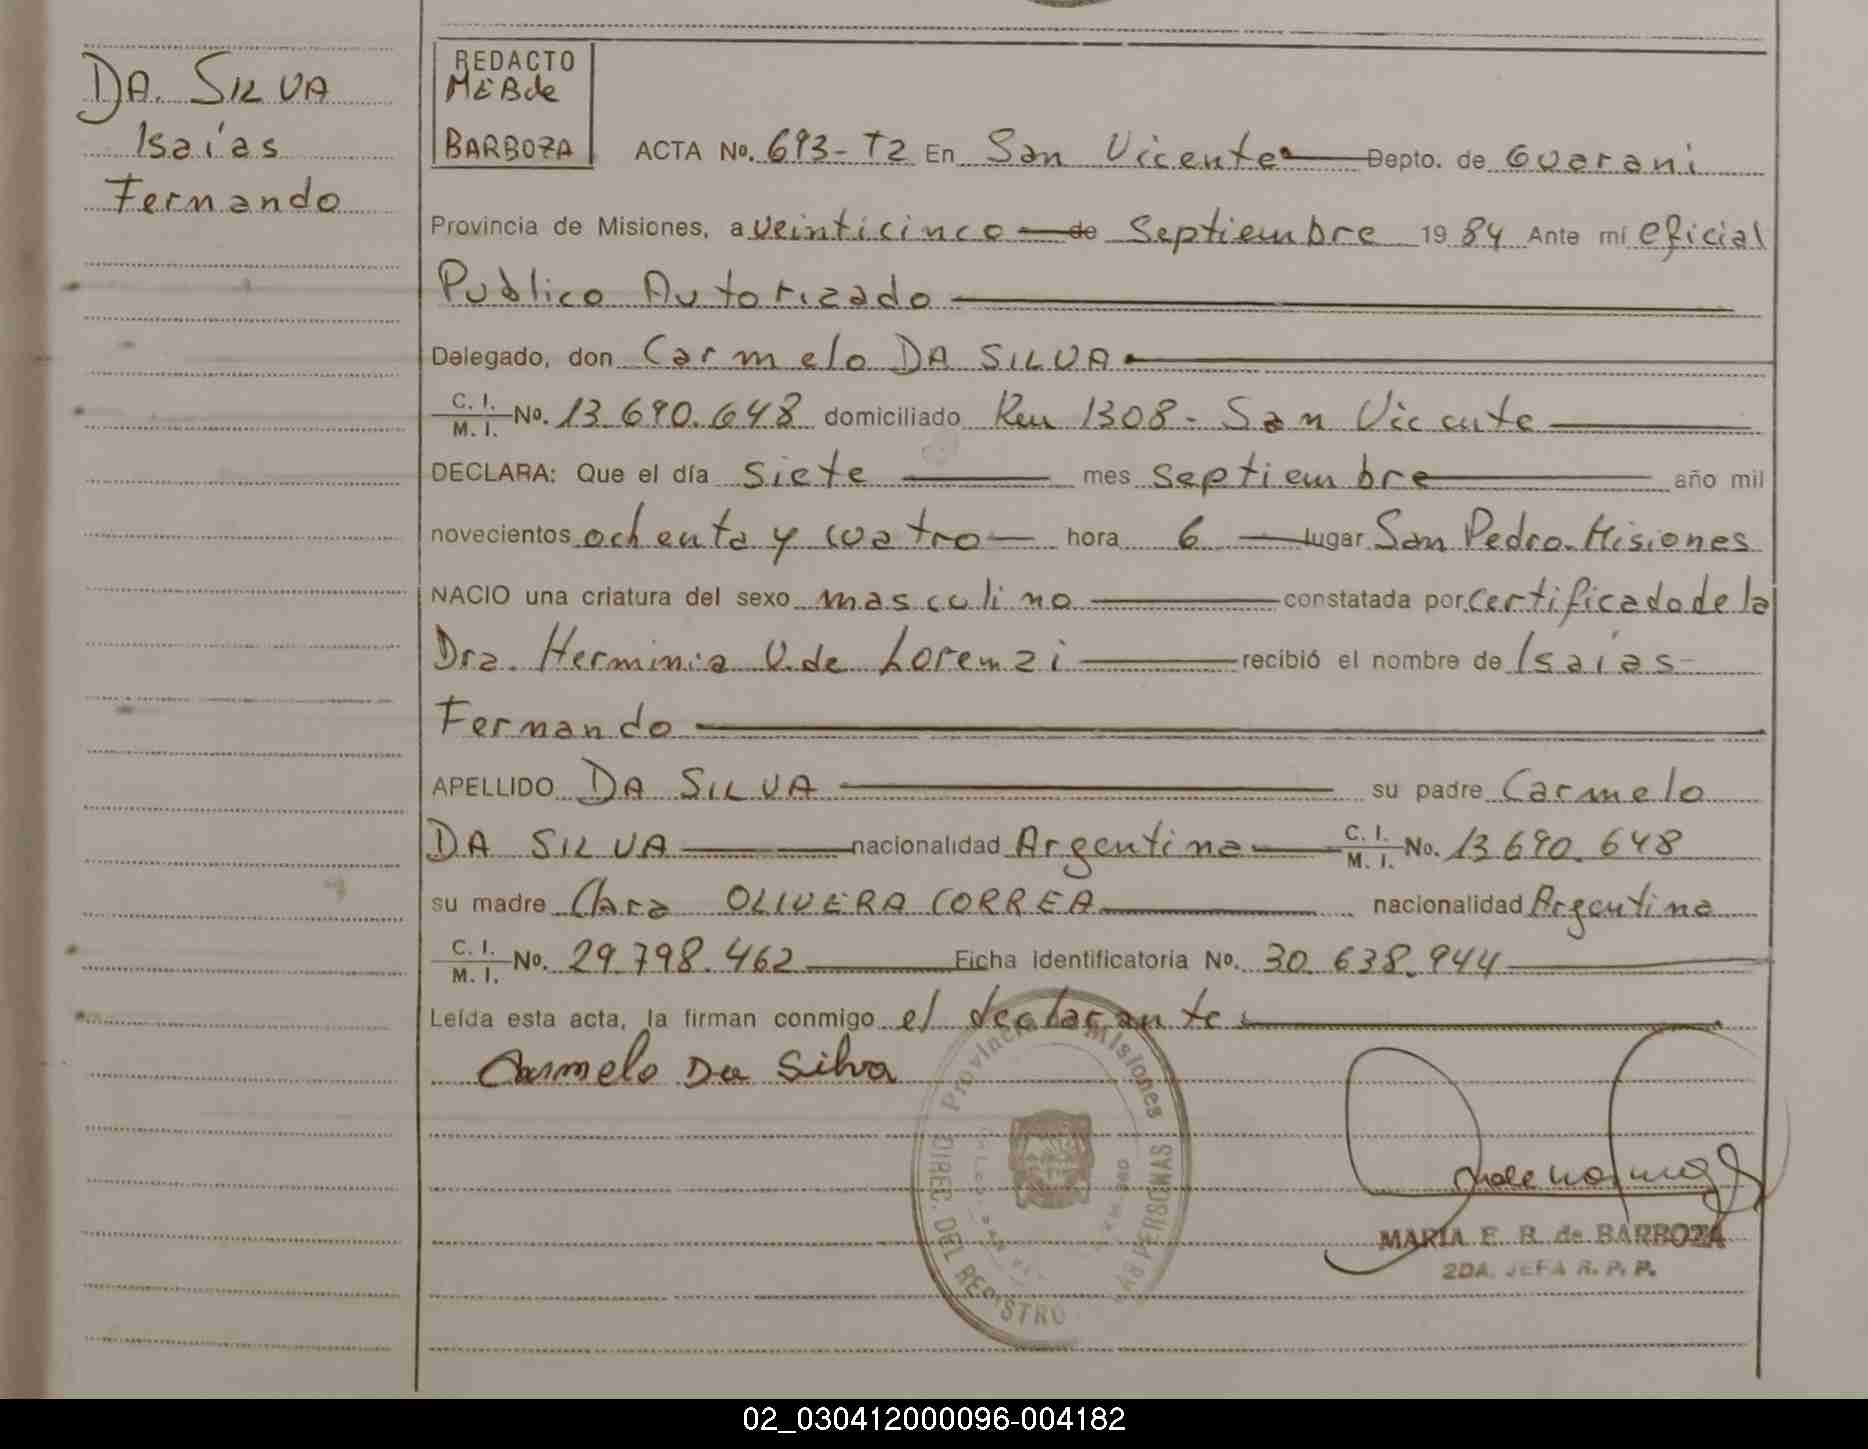 DA. SILVA
Isaías
Fernando
REDACTO
MEBde
BARBOZA
ACTA No. 693-T2 En San Vicente Depto. de Guarani
Provincia de Misiones, a veinticinco de Septiembre 1984 Ante mí oficial
Publico Autorizado
Delegado, don Carmelo DA SILVA
C. I. / M. I. No. 13.690.648 domiciliado Km 1308 - San Vicente
DECLARA: Que el día siete mes septiembre año mil
novecientos ochenta y cuatro hora 6 lugar San Pedro-Misiones
NACIO una criatura del sexo masculino constatada por certificado de la
Dra. Herminia V. de Lorenzi recibió el nombre de Isaías
Fernando
APELLIDO DA SILVA su padre Carmelo
DA SILVA nacionalidad Argentina C. I. / M. I. No. 13.690.648
su madre Clara OLIVERA CORREA nacionalidad Argentina
C. I. / M. I. No. 29.798.462 Ficha identificatoria No. 30.638.944
Leída esta acta, la firman conmigo el declarante
Carmelo Da Silva
Provincia Misiones
DIREC. DEL REGISTRO PERSONAS
MARIA E. B. de BARBOZA
2DA. JEFA R. P. P.
02_030412000096-004182